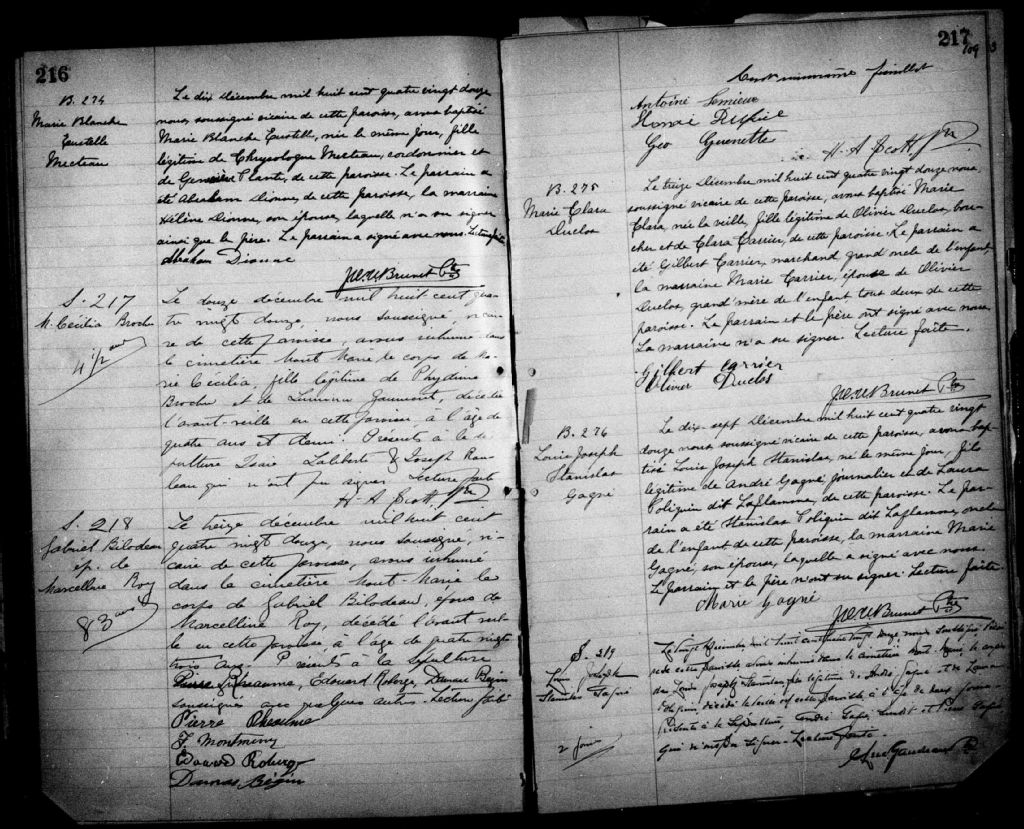 216
B. 274
Marie Blanche
Eustelle
Mecteau
Le dix Décembre mil huit cent quatre vingt douze
nous, soussigné vicaire de cette paroisse, avons baptisé
Marie Blanche Eustelle, née le même jour, fille
légitime de Chrysologue Mecteau, cordonnier et
de Plante, de cette paroisse. Le parrain a
été Abraham Dionne, de cette paroisse, la marraine
Hélène Dionne, son épouse, laquelle n'a su signer
ainsi que le père. Le parrain a signé avec nous. Lecture faite
Abraham Dionne
Brunet Ptre
S. 217
M. Cécilia Brochu
4 1/2 ans
Le douze décembre mil huit cent qua-
tre vingt douze, nous soussigné, vicai-
re de cette paroisse, avons inhumé dans
le cimetière Mont Marie le corps de Ma-
rie Cécilia, fille légitime de Phydime
Brochu et de Gaumont, décédée
l'avant-veille en cette paroisse, à l'âge de
quatre ans et demi. Présents à la sé-
pulture Isaïe Laliberté & Joseph
qui n'ont pu signer. Lecture faite
H. A. Scott Ptre
S. 218
Gabriel Bilodeau
ép. de
Marcelline Roy
83 ans
Le treize décembre mil huit cent
quatre vingt douze, nous soussigné, vi-
caire de cette paroisse, avons inhumé
dans le cimetière Mont-Marie le
corps de Gabriel Bilodeau, époux de
Marcelline Roy, décédé l'avant veil-
le en cette paroisse, à l'âge de quatre vingt
trois ans. Présents à la sépulture
Pierre Edouard Roberge, Damase Bégin
soussignés avec quelques autres. Lecture faite
Pierre
F. Montminy
Edouard Roberge
Damas Bégin
217
109
Antoine Lemieux
Henri
Geo Guenette
H. A. Scott Ptre
B. 275
Marie Clara
Duclos
Le treize Décembre mil huit cent quatre vingt douze, nous,
soussigné vicaire de cette paroisse, avons baptisé Marie
Clara, née la veille, fille légitime de Olivier Duclos, bou-
cher et de Clara Carrier, de cette paroisse. Le parrain a
été Gilbert Carrier, marchand, grand oncle de l'enfant,
la marraine Marie Carrier, épouse de Olivier
Duclos, grand'mère de l'enfant tous deux de cette
paroisse. Le parrain et le père ont signé avec nous.
La marraine n'a su signer. Lecture faite.
Gilbert Carrier
Olivier Duclos
Brunet Ptre
B. 276
Louis Joseph
Stanislas
Gagné
Le dix-sept Décembre mil huit cent quatre vingt
douze nous soussigné vicaire de cette paroisse, avons bap-
tisé Louis Joseph Stanislas, né le même jour, fils
légitime de André Gagné, journalier et de Laura
Poliquin dit Laflamme, de cette paroisse. Le par-
rain a été Stanislas Poliquin dit Laflamme, oncle
de l'enfant de cette paroisse, la marraine Marie
Gagné, son épouse, laquelle a signé avec nous.
Le parrain et le père n'ont su signer. Lecture faite
Marie Gagné
Brunet Ptre
S. 219
Louis Joseph
Stanislas Gagné
2 jours
Le vingt Décembre mil huit cent quatre vingt douze nous soussigné
de cette paroisse avons inhumé dans le cimetière Mont Marie, le corps
de Louis Joseph Stanislas fils légitime de André Gagné et de Laura
décédé la veille en cette paroisse à l'âge de deux jours.
Présents à la sépulture, André Gagné, et Pierre Gagné
qui n'ont su signer. Lecture faite.
Gaudreau Ptre